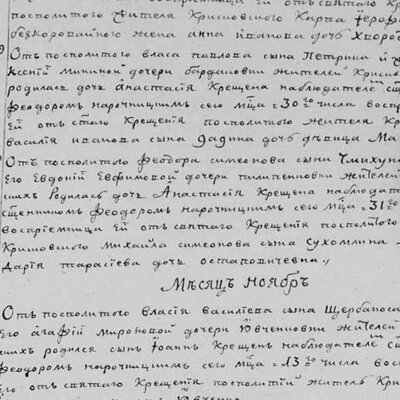 восприемница ей отъ святаго кр
посполитого жителя Крисовского Карпа Iероф
безкоровайного жена анна ивановна дочь Хворо
Отъ посполитого власа павлова сына Петрика и
Ксенiи Мининой дочери Богдановни жителей Крисов
родилась дочь анастасiя Крещена наблюдателемъ с
Феодоромъ нарочницкимъ сего мца 30го числа воспр
Ей отъ стаго Крещенiя посполитого жителя Кр
василiя иванова сына дочь дѣвица Ма
Отъ посполитого Феодора симеонова сына
Его Евдокiи Евфимовой дочери пилипенковни жителей
сихъ родилась дочь Анастасiя Крещена наблюдат
священникомъ Феодоромъ нарочницкимъ сего мца 31го
восприемница Ей отъ святаго Крещенiя посполитого
Крисовского Михайла симеонова сына сухомлина
Дарiя тарасiева дочь остаповичевна
Мѣсяцъ Ноябрь
Отъ посполитого власiя василiева сына Щербаноса
Его агафiи мироновой дочери Ювченковни жителей
сихъ родился сынъ Iоаннъ Крещенъ наблюдателемъ с
Феодоромъ нарочницкимъ сего мца 13го числа вос
Его отъ святаго Крещенiя посполитiй житель Крис